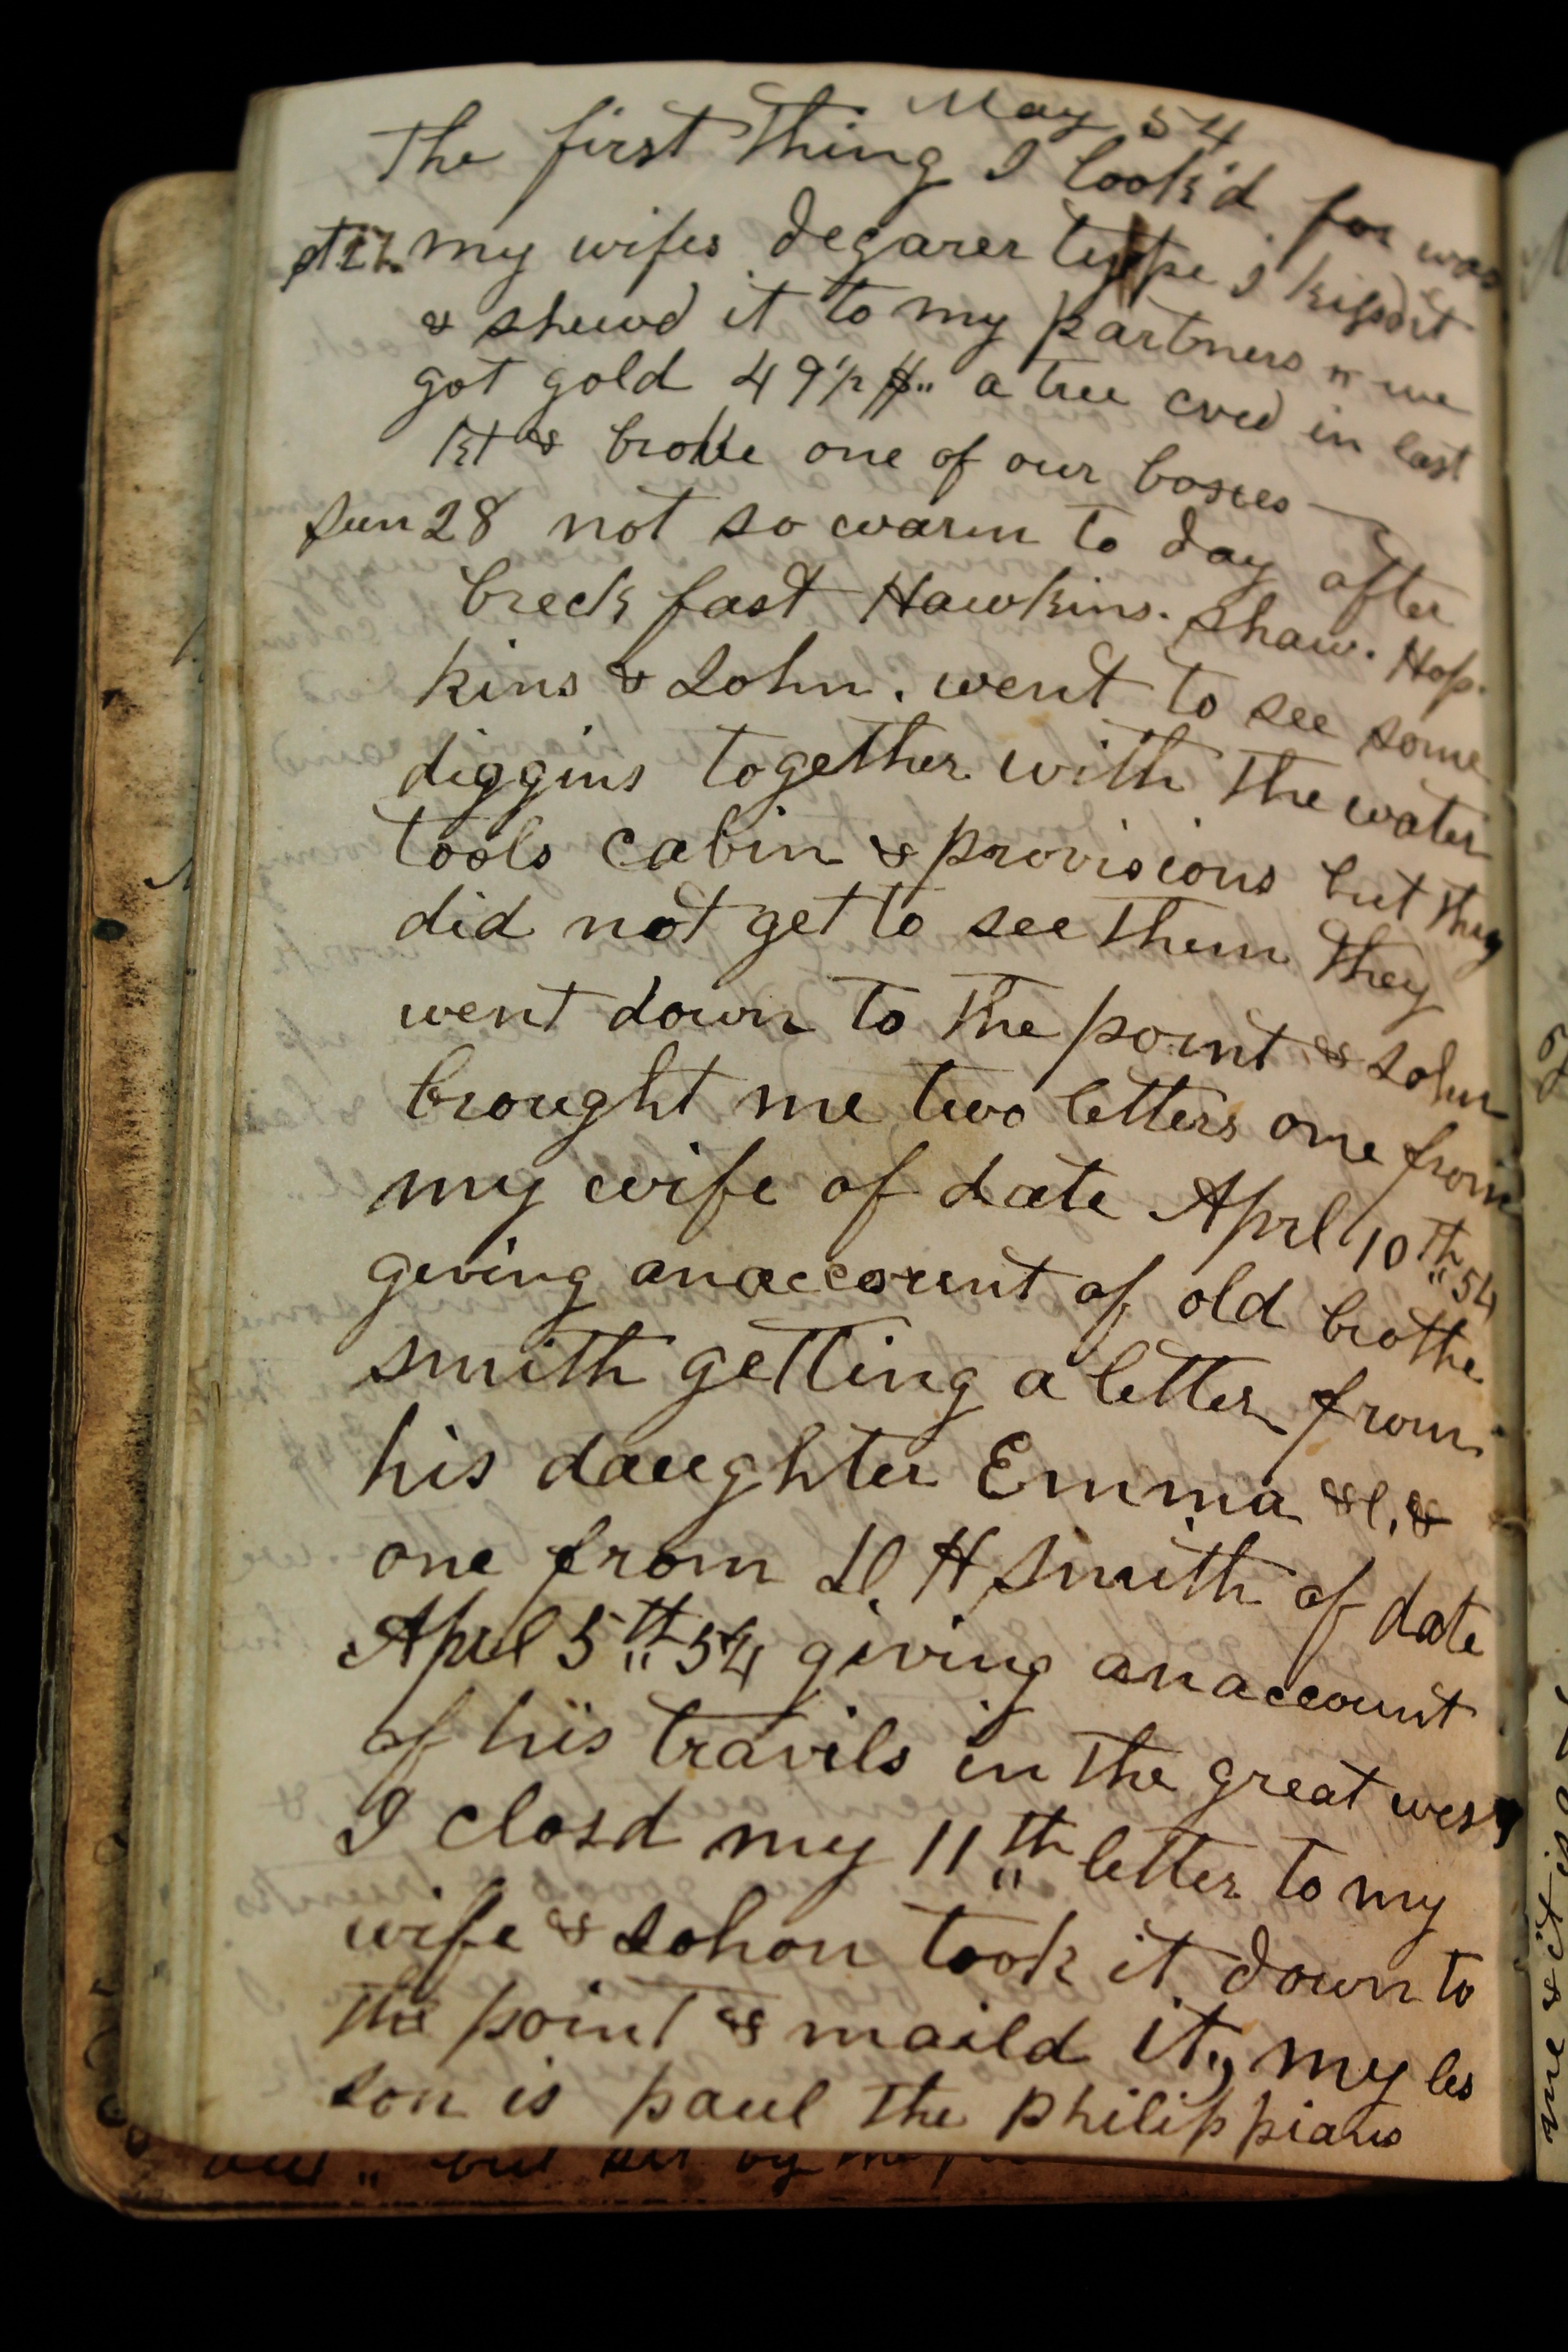 May 54
The first thing I look'd for was
st 27. my wifes degarer type I kiss'd it
& shewd it to my partners " we
got gold 49½ $" a tree cved in last
& broke one of our boxes —
Sun 28 not so warm to day after
breck fast Hawkins. Shaw. Hop-
kins & John. went to see some
diggins together with the water
tools cabin & provisions but they
did not get to see them they
went down to the point & John
brought me two letters one from
my wife of date Aprl 10th 54
giving an account of old brothe
smith getting a letter from
his daughter Emma &c, &
one from H Smith of date
April 5th 54 giving an account
of his travils in the great west
I closd my 11th letter to my
wife & Johon took it down to
the point & maild it, my les
son is paul the philippians
but by
me & it is